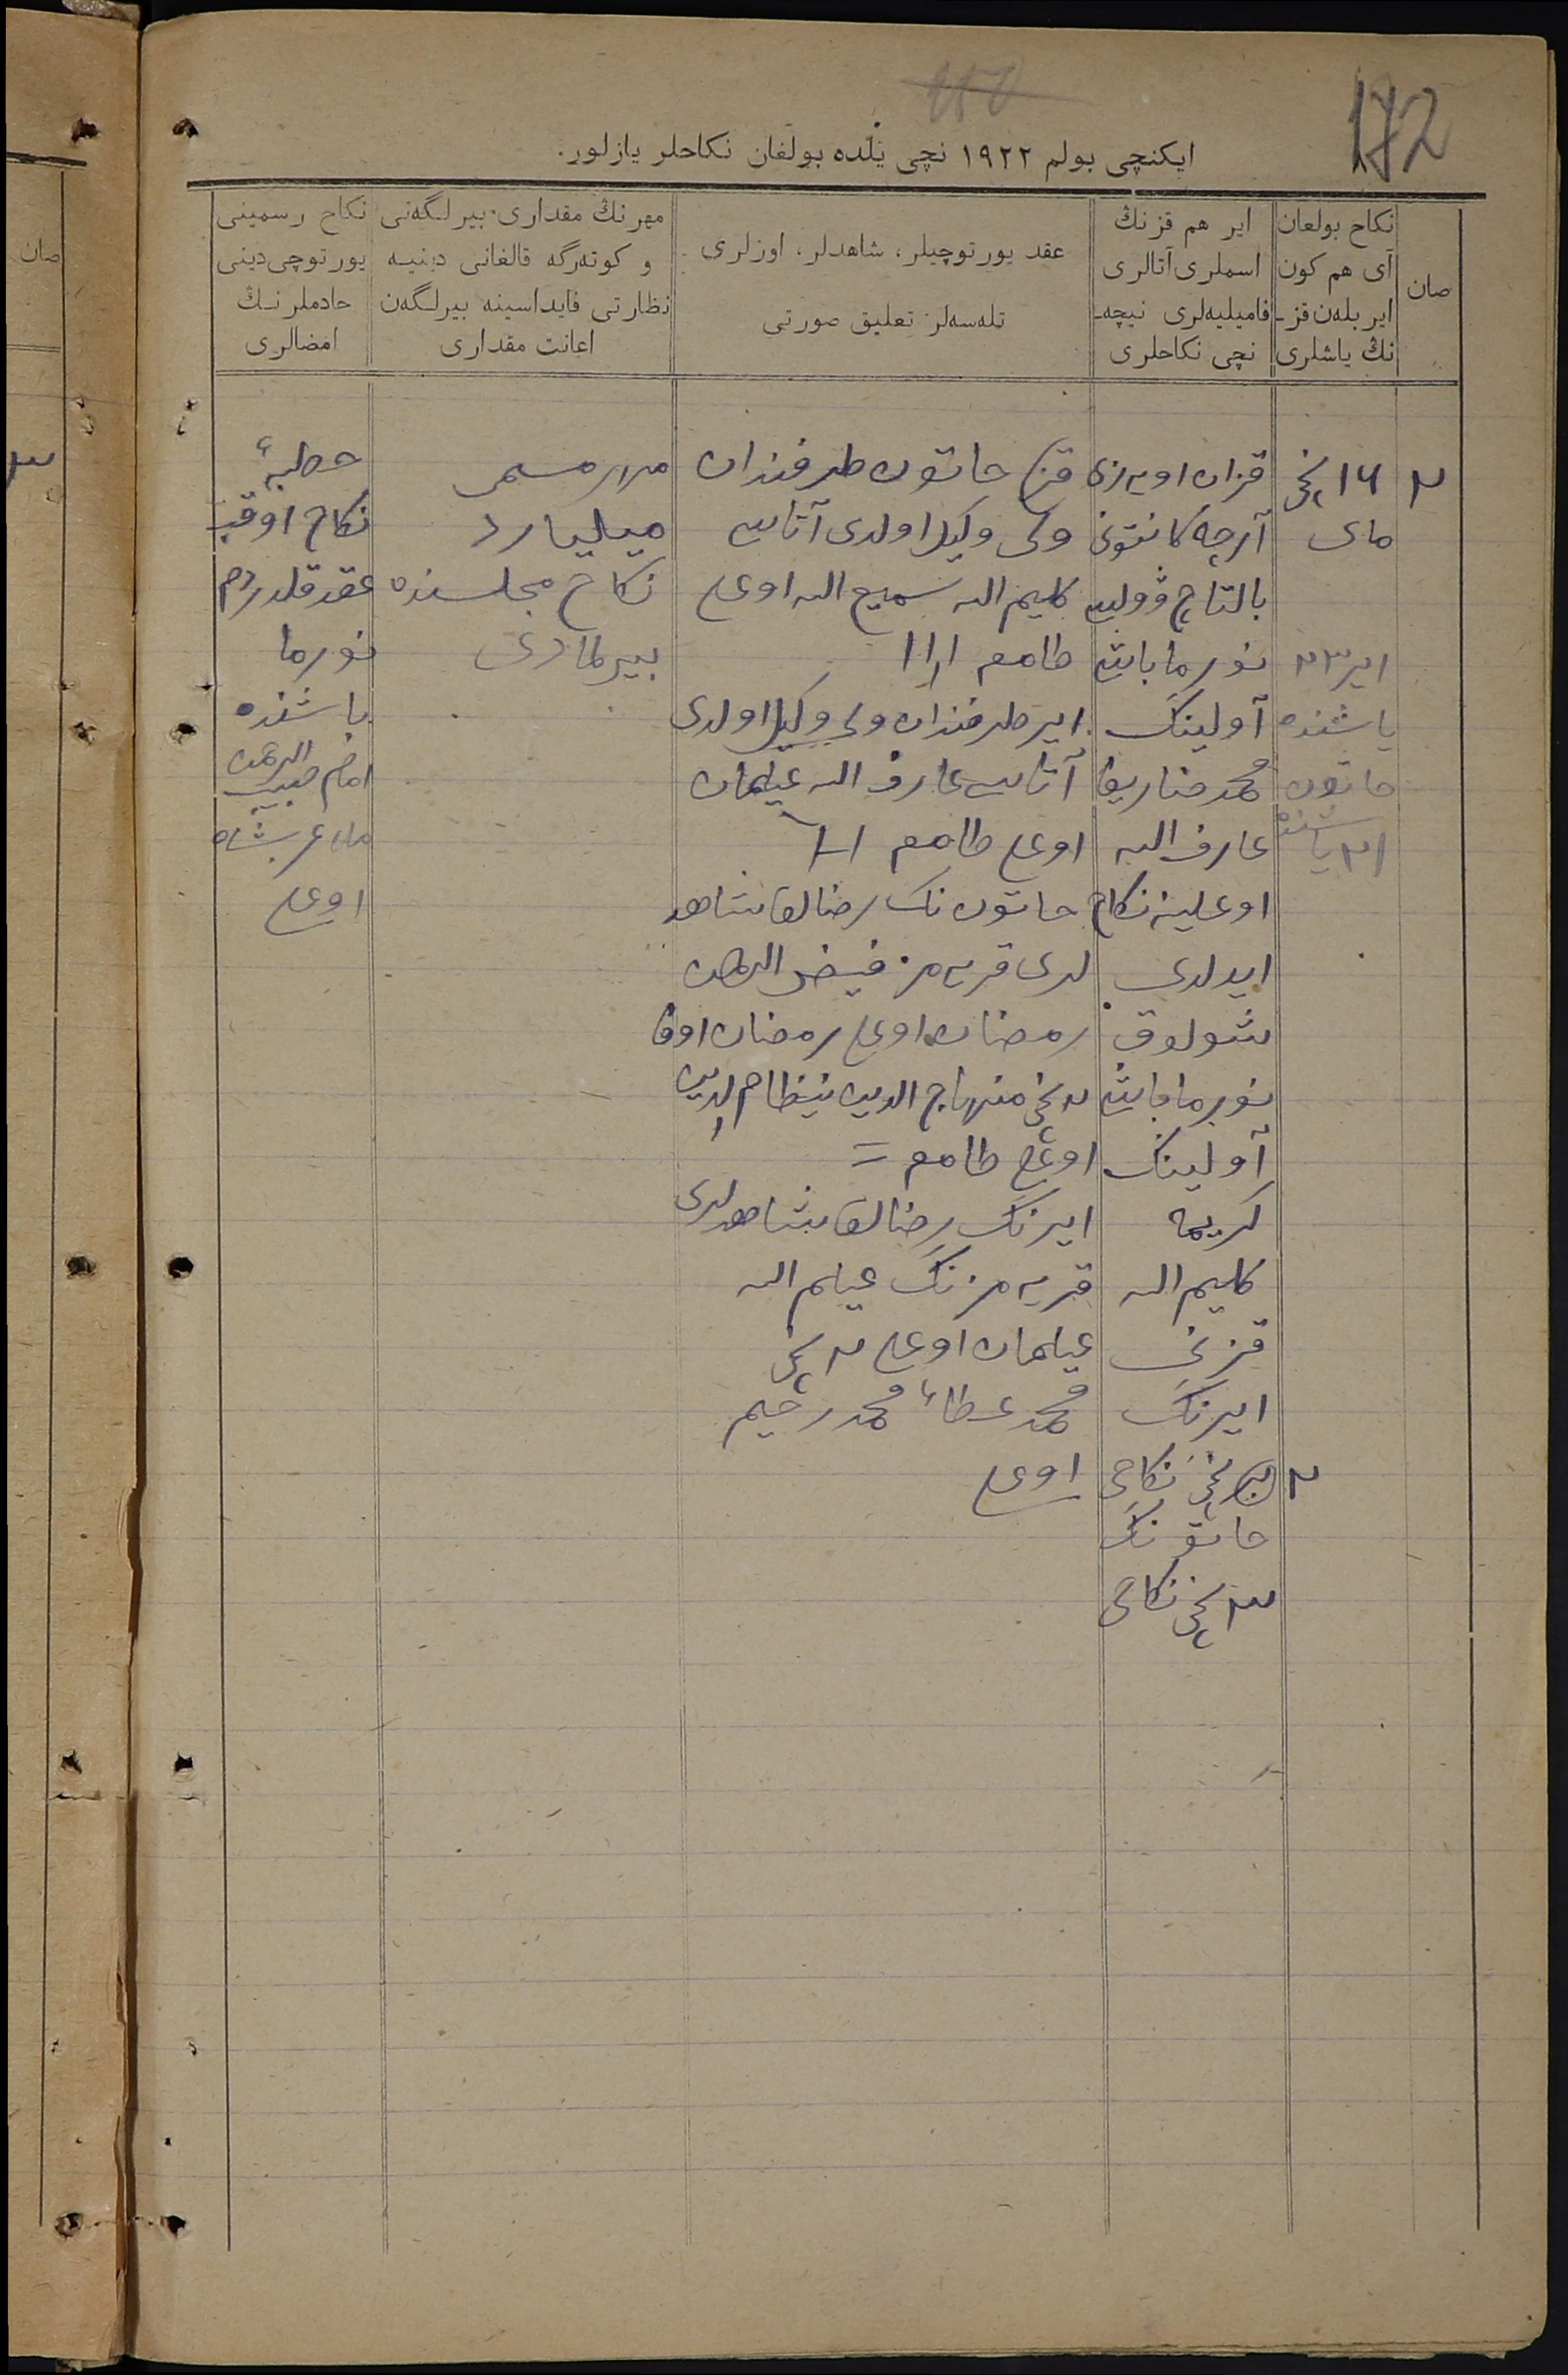 172
ایکنچی بولم ١٩٢٢ نچی یلده بولغان نکاحلر یازلور.
صان
نکاح بولعان
آی هم کون
ایر بلەن قز-
نڭ یاشلری
ایر هم قزنڭ
اسملری آتالری
فامیلیەلری نیچە-
نچی نکاحلری
عقد یورتوچیلر، شاهدلر، اوزلری
تلەسەلر تعلیق صورتی
مهرنڭ مقداری. بیرلگەنی
و کوتەرگە قالغانی دینیە
نظارتی فایداسینە بیرلگەن
اعانت مقداری
نکاح رسمینی
یورتوچی دینی
خادملرنڭ
امضالری
٢
١٦ نچی
مای
ایر ٢٣
یاشنده
خاتون
٢١ یاشنده
قزان اویەزی
آرچە کانتونی
بالتاچ وولیس
نورما باش
آولینڭ
محمد ضاریف
عارف الله
اوغلینە نکاح
ایدلدی
شولوق
نورما باش
آولینڭ
کریمە
کلیم الله
قزنی
ایرنڭ
٢ نچی نکاحی
خاتوننڭ
٣ نچی نکاحی
٢
قز خاتون طرفندان
ولی وکیل اولدی آتاسی
کلیم الله سمیع الله اوغلی
طامعە
ایر طرفندان ولی وکیل اولدی
آتاسی عارف الله عیلمان
اوغلی طامعە
خاتون نڭ رضالغا شاهد
لری قریەمز فیض الرحمن
رمضان اوغلی رمضان اوف
٢ نچی منهاج الدین نیظام الدین
اوغلی طامعە =
ایرنڭ رضالغا شاهدلری
قریەمزنڭ عیلم الله
عیلمان اوغلی ٢ نچی
محمد عطاء محمد رحیم
اوغلی
مهر مسمی
میلیارد
نکاح مجلسنده
بیرلمادی
خطبۀ
نکاح اوقب
عقد قلدردم
نورما
باشنده
امام حبیب الرحمن
ملا عربشاه
اوغلی
صان
٣